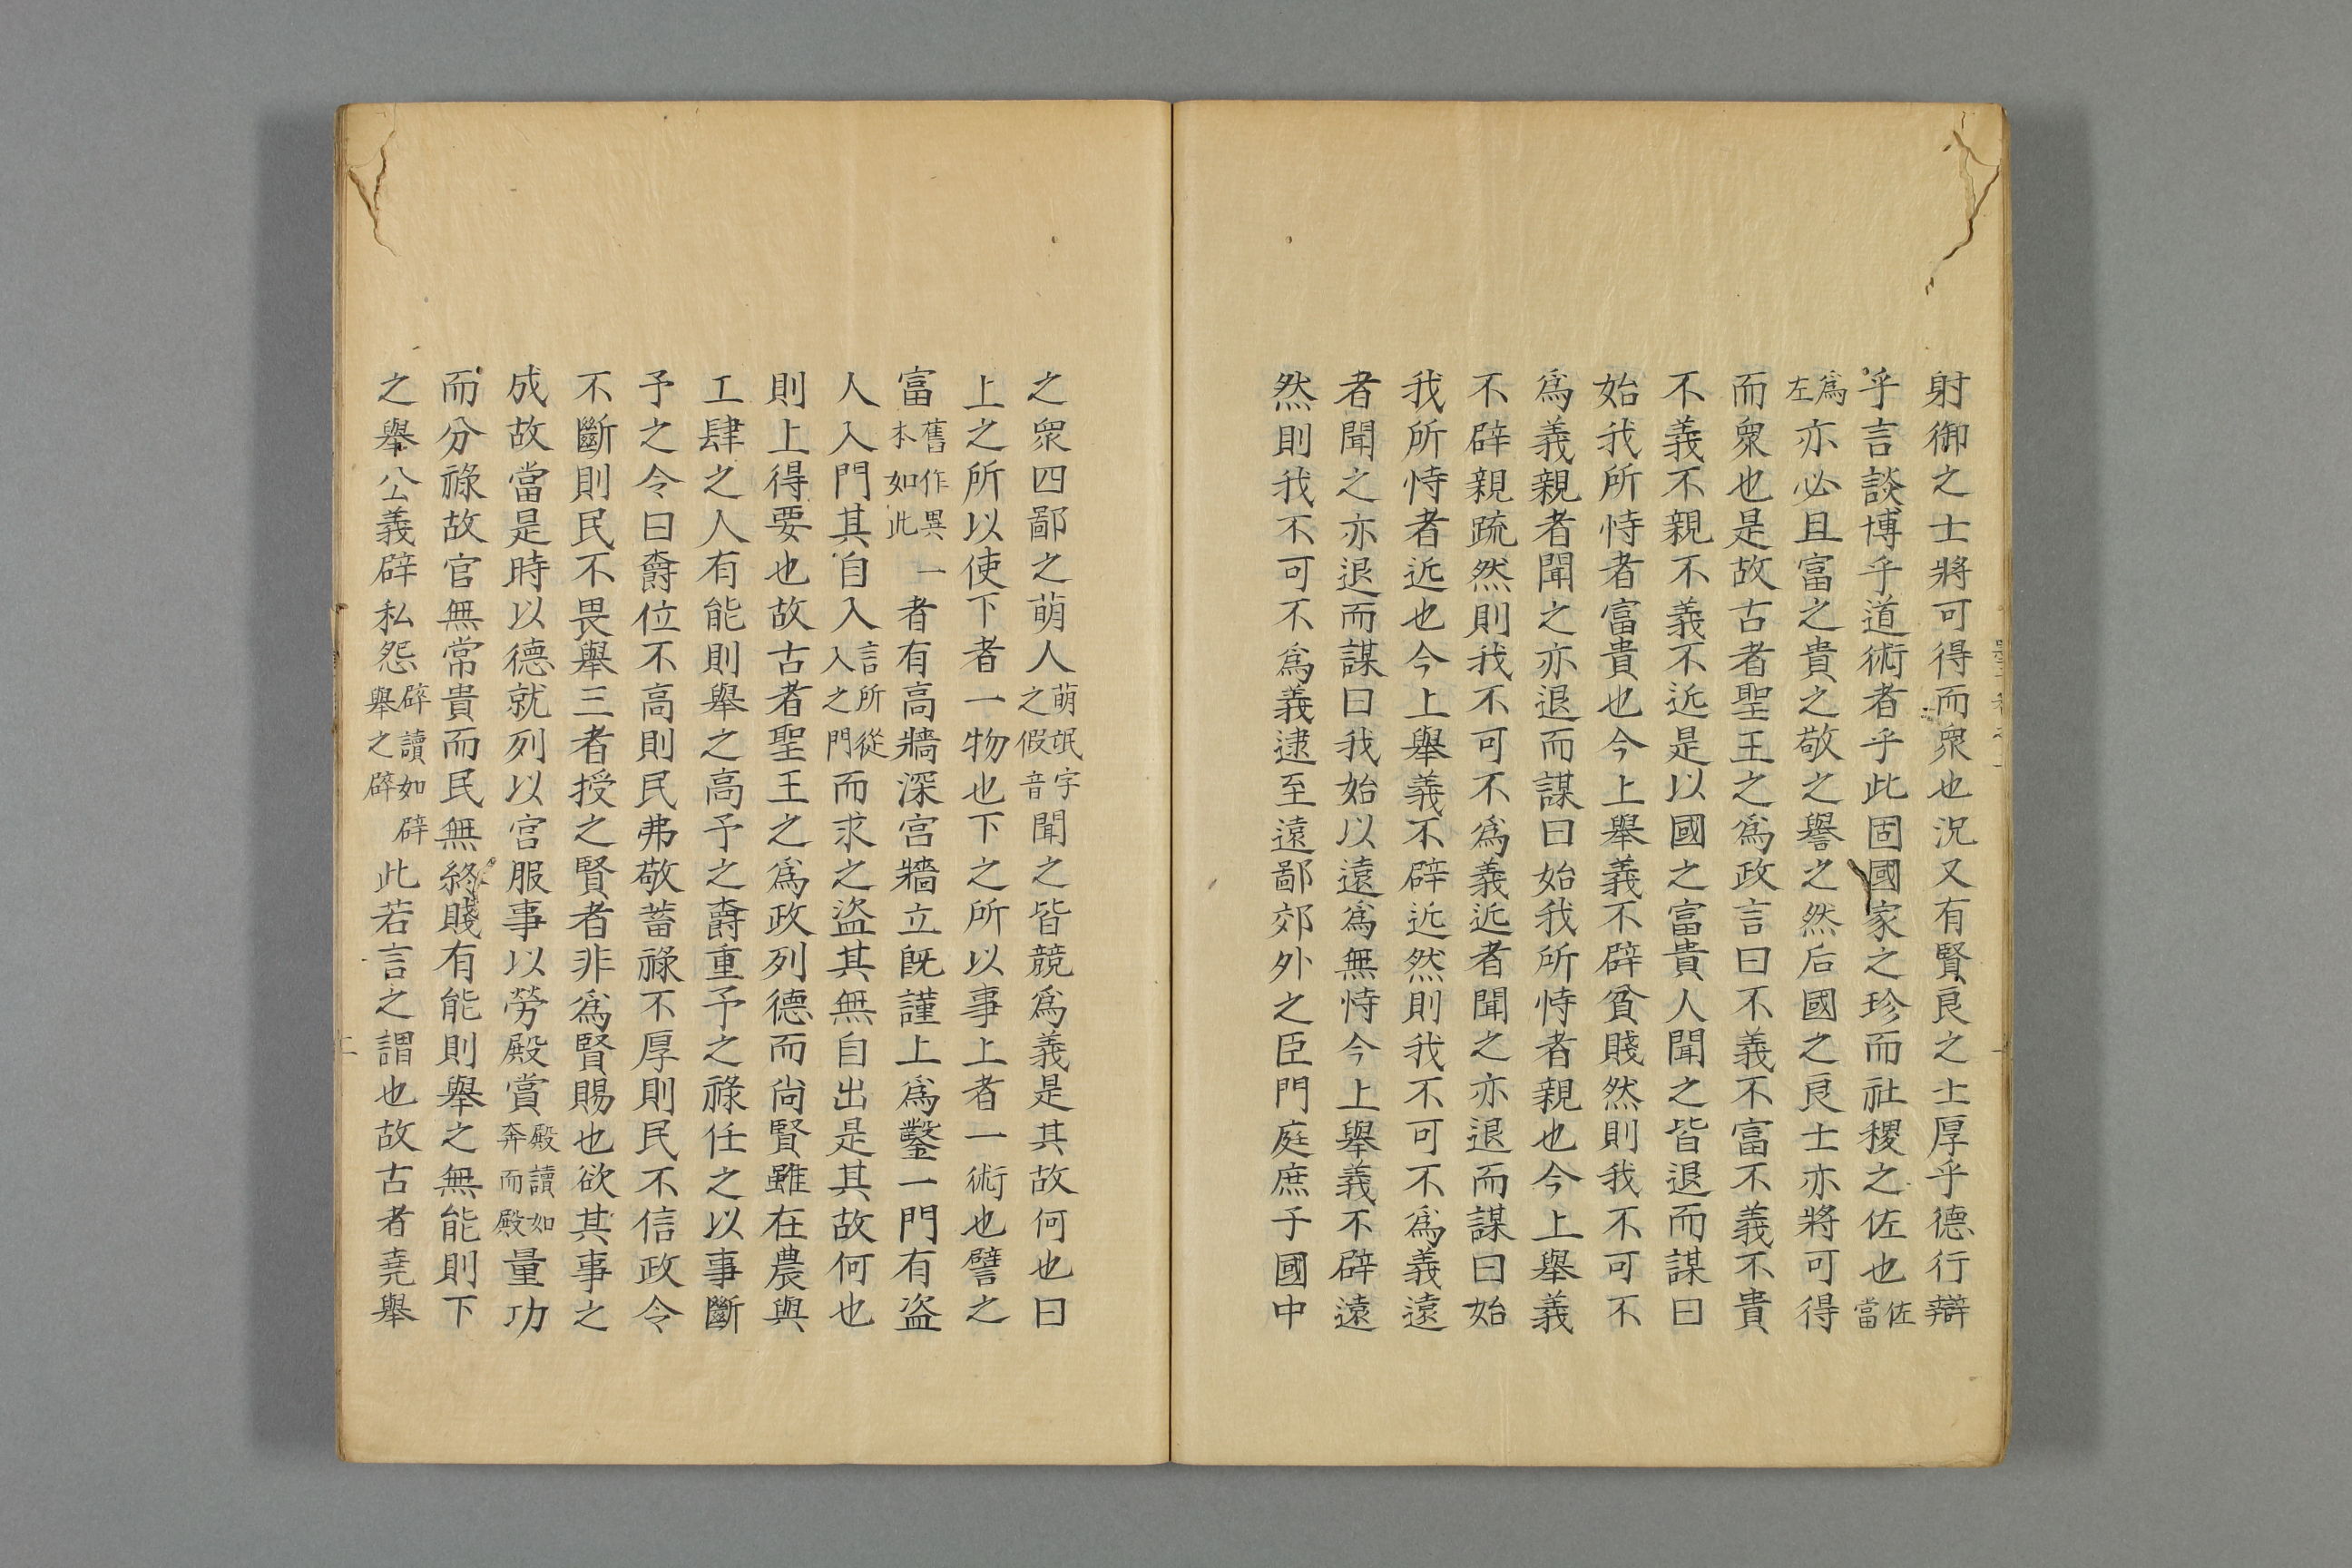 射御之士將可得而衆也況又有賢良之士厚乎德行辯
乎言談博乎道術者乎此固國家之珍而社稷之佐也佐當
爲左亦必且富之貴之敬之譽之然后國之良士亦將可得
而衆也是故古者聖王之爲政言曰不義不富不義不貴
不義不親不義不近是以國之富貴人聞之皆退而謀曰
始我所恃者富貴也今上舉義不辟貧賤然則我不可不
爲義親者聞之亦退而謀曰始我所恃者親也今上舉義
不辟親疏然則我不可不爲義近者聞之亦退而謀曰始
我所恃者近也今上舉義不辟近然則我不可不爲義遠
者聞之亦退而謀曰我始以遠爲無恃今上舉義不辟遠
然則我不可不爲義逮至遠鄙郊外之臣門庭庶子國中
之衆四鄙之萌人萌氓字之假音聞之皆競爲義是其故何也曰
上之所以使下者一物也下之所以事上者一術也譬之
富舊作異一本如此者有高牆深宮牆立既謹上爲鑿一門有盜
人入門其自入言所從入之門而求之盜其無自出是其故何也
則上得要也故古者聖王之爲政列德而尙賢雖在農與
工肆之人有能則舉之高予之爵重予之祿任之以事斷
予之令曰爵位不高則民弗敬蓄祿不厚則民不信政令
不斷則民不畏舉三者授之賢者非爲賢賜也欲其事之
成故當是時以德就列以官服事以勞殿賞殿讀如奔而殿量功
而分祿故官無常貴而民無終賤有能則舉之無能則下
之舉公義辟私怨辟讀如辟舉之辟此若言之謂也故古者堯舉
二